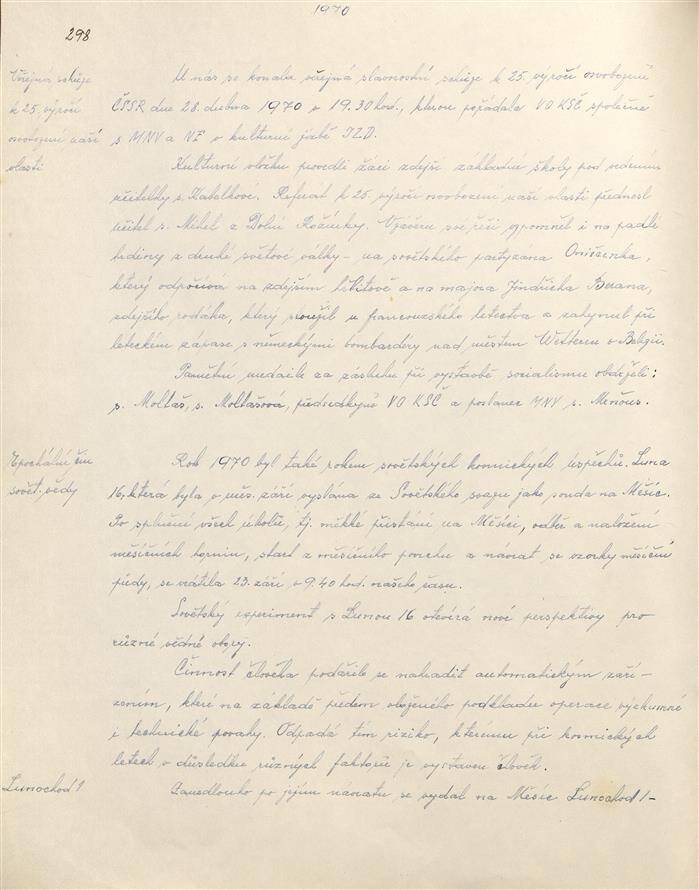 1970
298
Veřejná schůze
k 25. výročí
osvobození naší
vlasti
U nás se konala veřejná slavnostní schůze k 25. výročí osvobození
ČSSR dne 28. dubna 1970 v 19.30 hod., kterou pořádala VO KSČ společně
s MNV a NF v kulturní jizbě JZD.
Kulturní vložku provedli žáci zdejší základní školy pod vedením
učitelky s. Kabelkové. Referát k 25. výročí osvobození naší vlasti přednesl
učitel s. z Dolní Rožínky. V závěru své řeči vzpomněl i na padlé
hrdiny z druhé světové války – na sovětského partyzána Oniščenka,
který odpočívá na zdejším hřbitově a na majora Jindřicha Berana,
zdejšího rodáka, který sloužil u francouzského letectva a zahynul při
leteckém zápase s německými bombardéry nad městem v Belgii.
Pamětní medaile za zásluhu při výstavbě socialismu obdrželi:
s. Moltaš, s. Moltašová, předsedkyně VO KSČ a poslanec MNV s.
Epochální čin
sovět. vědy
Rok 1970 byl také rokem sovětských kosmických úspěchů. Luna
16, která byla v měs. září vyslána ze Sovětského svazu jako sonda na Měsíc.
Po splnění všech úkolů, tj. měkké přistání na Měsíci, odběr a naložení
měsíčních hornin, start z měsíčního povrchu a návrat se vzorky měsíční
půdy, se vrátila 23. září v 9.40 hod. našeho času.
Sovětský experiment s Lunou 16 otevírá nové perspektivy pro
různé vědné obory.
Činnost člověka podařilo se nahradit automatickým zaří-
zením, které na základě předem vloženého podkladu operace výzkumné
i technické povahy. Odpadá tím riziko, kterému při kosmických
letech v důsledku různých faktorů je vystaven člověk.
Lunochod 1
Zanedlouho po jejím návratu se vydal na Měsíc Lunochod 1-